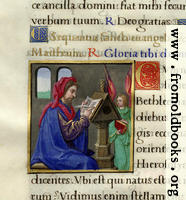 ce ancilla domini: fiat mihi secun
verbum tuum. R. Deo gratias
Sequentia sancti evangelii
Matheum. R. Gloria tibi d
C
Bethle
diebus
oriente
Hierof
dicentes. Ubi est qui natus est
rum? Vidimus enim stellam
www.fromoldbooks.org